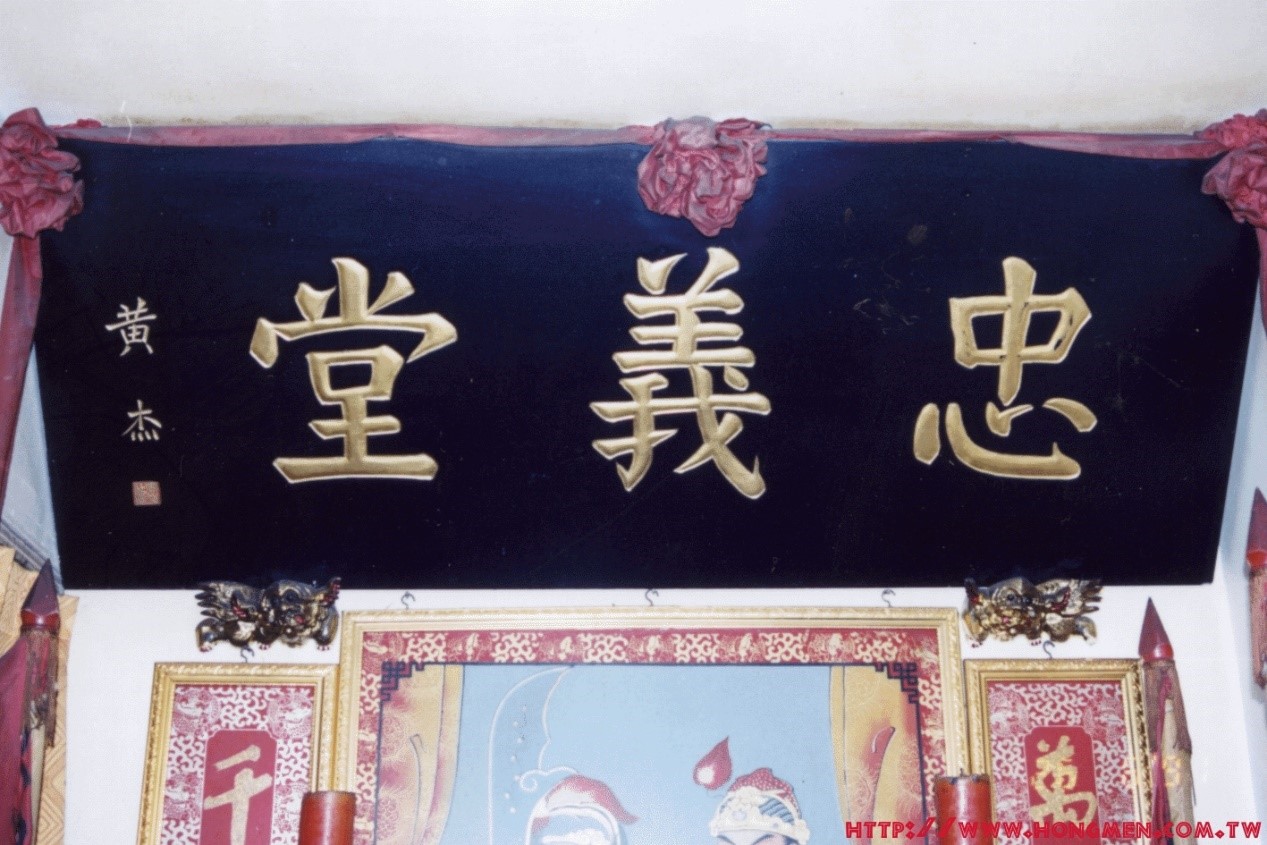 忠義堂
黃杰
萬
千
HTTP://WWW.HONGMEN.COM.TW